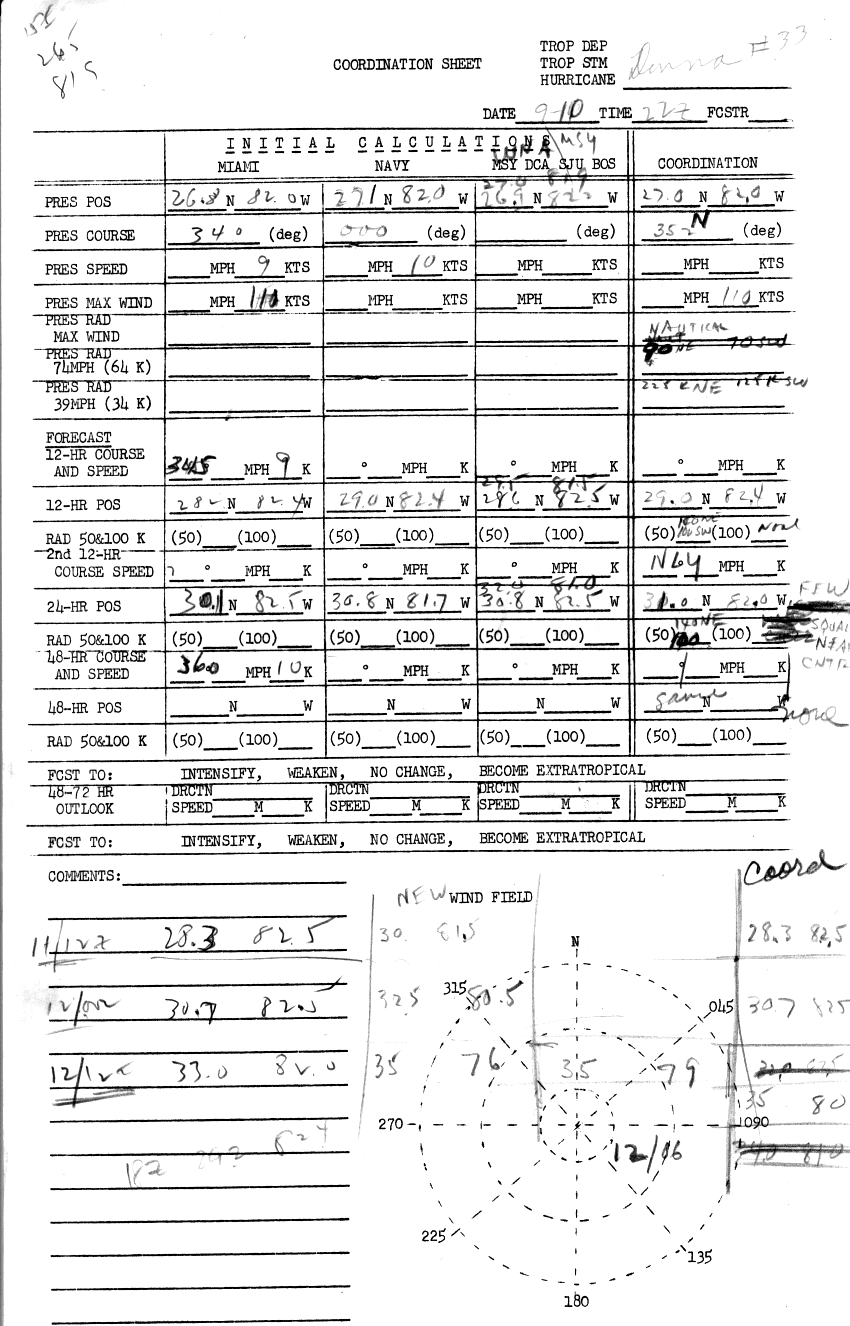 26.5
81.5
TROP DEP
COORDINATION SHEET TROP STM Donna #33
HURRICANE
DATE 9-10 TIME 22Z FCSTR
INITIAL CALCULATIONS MSY
MIAMI NAVY MSY DCA SJU BOS COORDINATION
PRES POS 26.8 N 82.0 W 271 N 82.0 W N 82.2 W 27.0 N 82.0 W
PRES COURSE 340 (deg) 000 (deg) (deg) 352 N (deg)
PRES SPEED MPH 9 KTS MPH 10 KTS MPH KTS MPH KTS
PRES MAX WIND MPH 110 KTS MPH KTS MPH KTS MPH 110 KTS
PRES RAD
MAX WIND NAUTICAL
PRES RAD 90 NE 70 SW
74MPH (64 K)
PRES RAD 225 K NE 125 K SW
39MPH (34 K)
FORECAST
12-HR COURSE
AND SPEED 345 MPH 9 K ° MPH K ° MPH K ° MPH K
29.5 81.5
12-HR POS 282 N 82.4 W 29.0 N 82.4 W 286 N 82.5 W 29.0 N 82.4 W
RAD 50&100 K (50) (100) (50) (100) (50) (100) (50) 100 SW (100) None
2nd 12-HR
COURSE SPEED ° MPH K ° MPH K ° MPH K MPH K
32.0 81.0
24-HR POS 30.1 N 82.5 W 30.8 N 81.7 W 30.8 N 82.5 W 31.0 N 82.0 W FEW
RAD 50&100 K (50) (100) (50) (100) (50) (100) (50) 140 NE 100 (100)
48-HR COURSE
AND SPEED 360 MPH 10 K ° MPH K ° MPH K ° MPH K
48-HR POS N W N W N W N W
RAD 50&100 K (50) (100) (50) (100) (50) (100) (50) (100) None
FCST TO: INTENSIFY, WEAKEN, NO CHANGE, BECOME EXTRATROPICAL
48-72 HR DRCTN DRCTN DRCTN DRCTN
OUTLOOK SPEED M K SPEED M K SPEED M K SPEED M K
FCST TO: INTENSIFY, WEAKEN, NO CHANGE, BECOME EXTRATROPICAL
COMMENTS: Coord
NEW WIND FIELD
11/12Z 28.3 82.5 30. 81.5 N 28.3 82.5
12/00Z 30.7 82.5 32.5 315 80.5 045 30.7 825
12/12Z 33.0 82.0 35 76 35 79
35 80
270 090
18Z 292 824 12/06
225 135
180